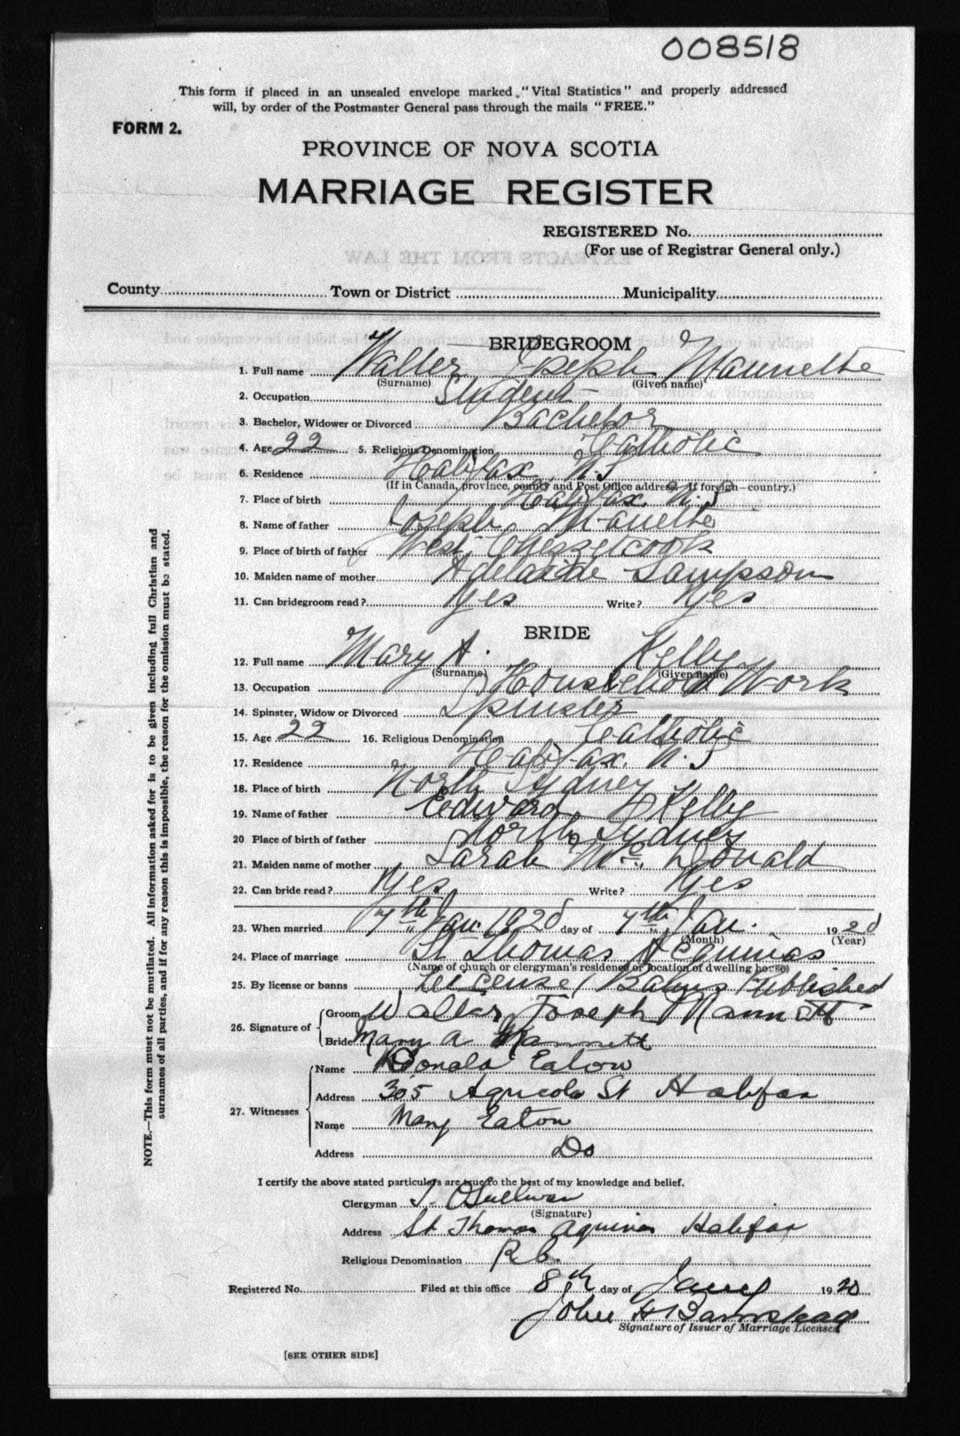 008518
This form if placed in an unsealed envelope marked "Vital Statistics" and properly addressed
will, by order of the Postmaster General pass through the mails "FREE."
FORM 2.
PROVINCE OF NOVA SCOTIA
MARRIAGE REGISTER
REGISTERED No.
(For use of Registrar General only.)
EXTRACTS FROM THE LAW
County Town or District Municipality
BRIDEGROOM
1. Full name Walter Joseph Mannette
(Surname) (Given name)
2. Occupation Student
3. Bachelor, Widower or Divorced Bachelor
4. Age 22 5. Religious Denomination Catholic
6. Residence Halifax N.S
(If in Canada, province, county and Post Office address—If foreign—country.)
7. Place of birth Halifax N.S
8. Name of father Joseph Manette
9. Place of birth of father West Chezzetcook
10. Maiden name of mother Adelaide Sampson
11. Can bridegroom read? Yes Write? Yes
BRIDE
12. Full name Mary A. Kelly
(Surname) (Given name)
13. Occupation Household Work
14. Spinster, Widow or Divorced Spinster
15. Age 22 16. Religious Denomination Catholic
17. Residence Halifax. N.S
18. Place of birth North Sydney
19. Name of father Edward Kelly
20 Place of birth of father North Sydney
21. Maiden name of mother Sarah Mc Donald
22. Can bride read? Yes Write? Yes
23. When married 7th Jan. 1920 day of 7th Jan. 1920
(Month) (Year)
24. Place of marriage St Thomas Aquinas
(Name of church or clergyman's residence or location of dwelling house)
25. By license or banns License / Banns Published
26. Signature of Groom Walter Joseph Mannett
Bride Mary A Mannett
27. Witnesses Name Donald Eaton
Address 305 Agricola St Halifax
Name Mary Eaton
Address Do
I certify the above stated particulars are true to the best of my knowledge and belief.
Clergyman T. O'Sullivan
(Signature)
Address St Thomas Aquinas Halifax
Religious Denomination R.C.
Registered No. Filed at this office 8th day of Jany 1920
John H Barnstead
Signature of Issuer of Marriage Licenses
[SEE OTHER SIDE]
NOTE.—This form must not be mutilated. All information asked for is to be given including full Christian and
surnames of all parties, and if for any reason this is impossible, the reason for the omission must be stated.